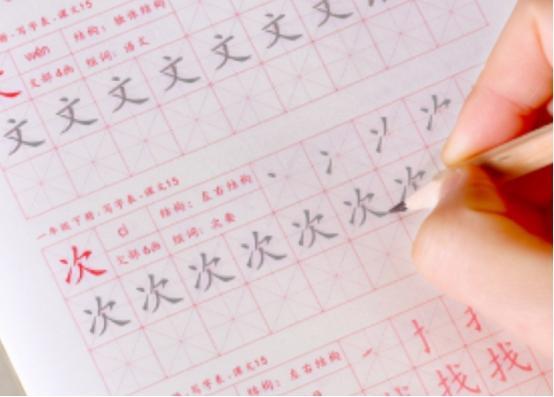 写字表·课文15
wén 结构：独体结构
文部4画 组词：语文
文 文 文 文 文 文 文
一年级下册·写字表·课文15
次 cì 结构：左右结构
欠部6画 组词：次要
次 次 次 次 次 次 次
写字表·课文15
结构：左右结构
找 找